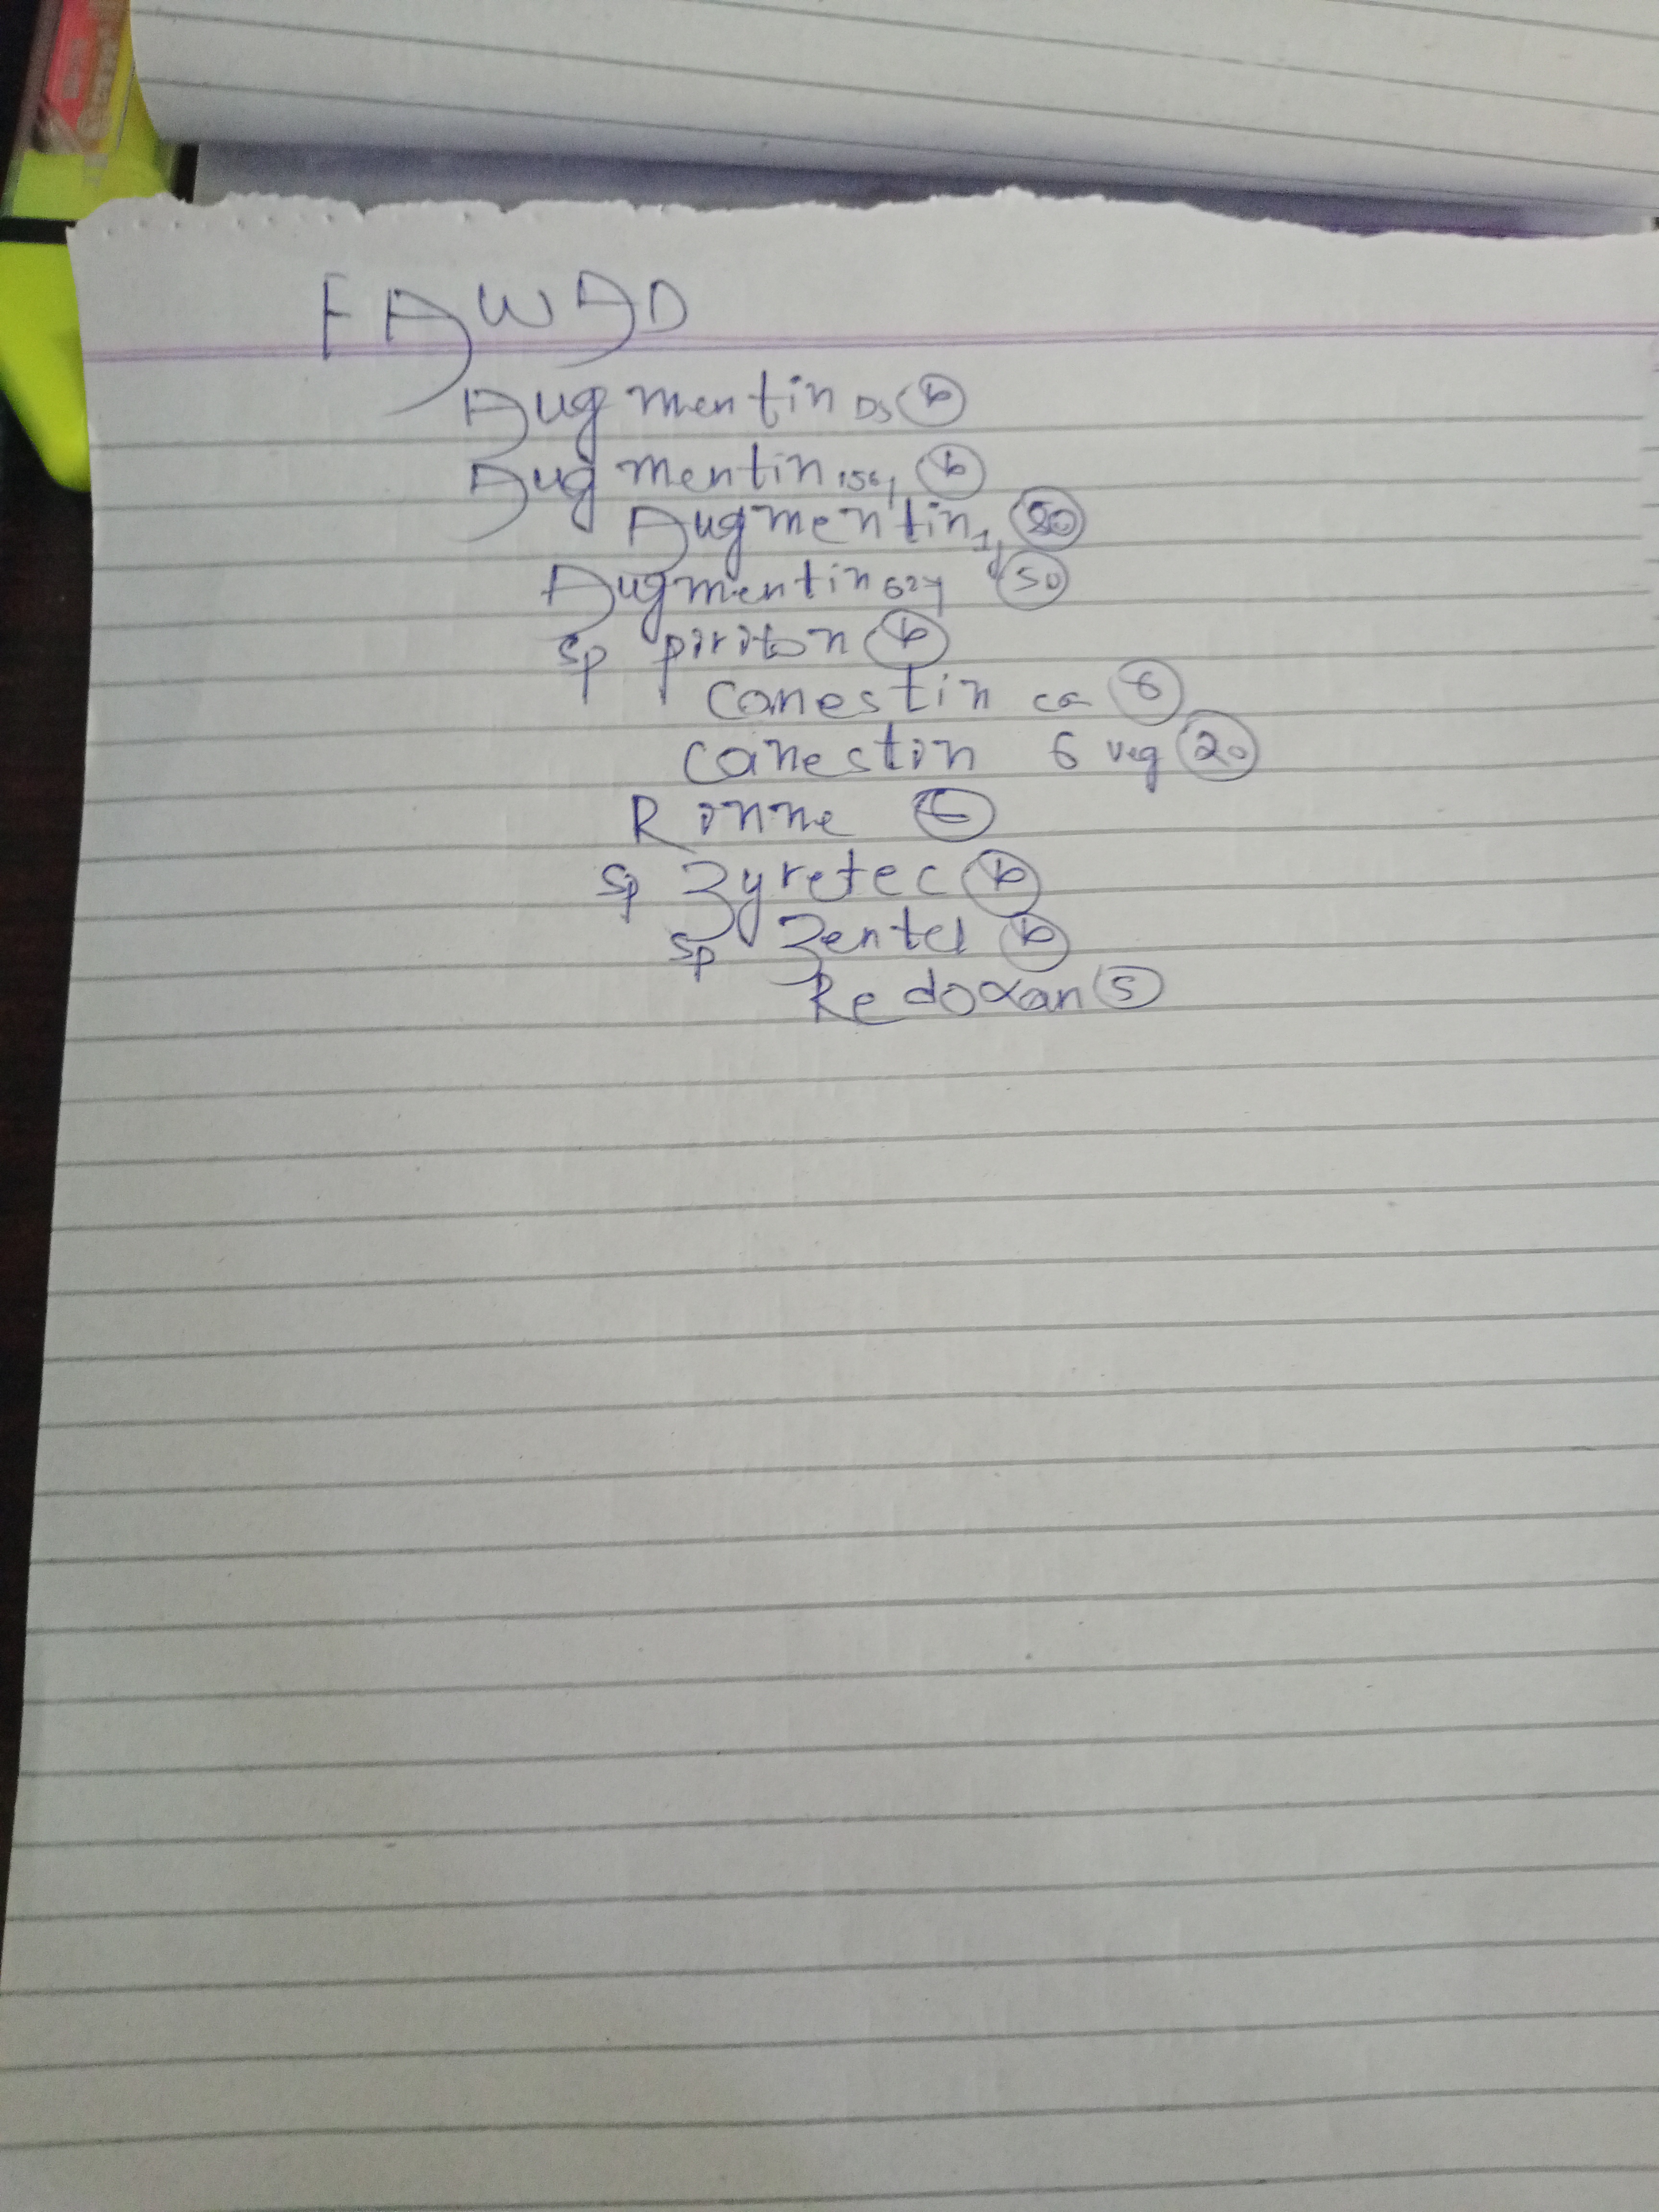 FAWAD
Augmentin DS
Augmentin 156
Augmentin 1g
Augmentin 624 50
sp piriton
Canestin ca
Canestin 6 veg 20
Rinne
sp Zyretec
sp Zentel
Redoxan 5